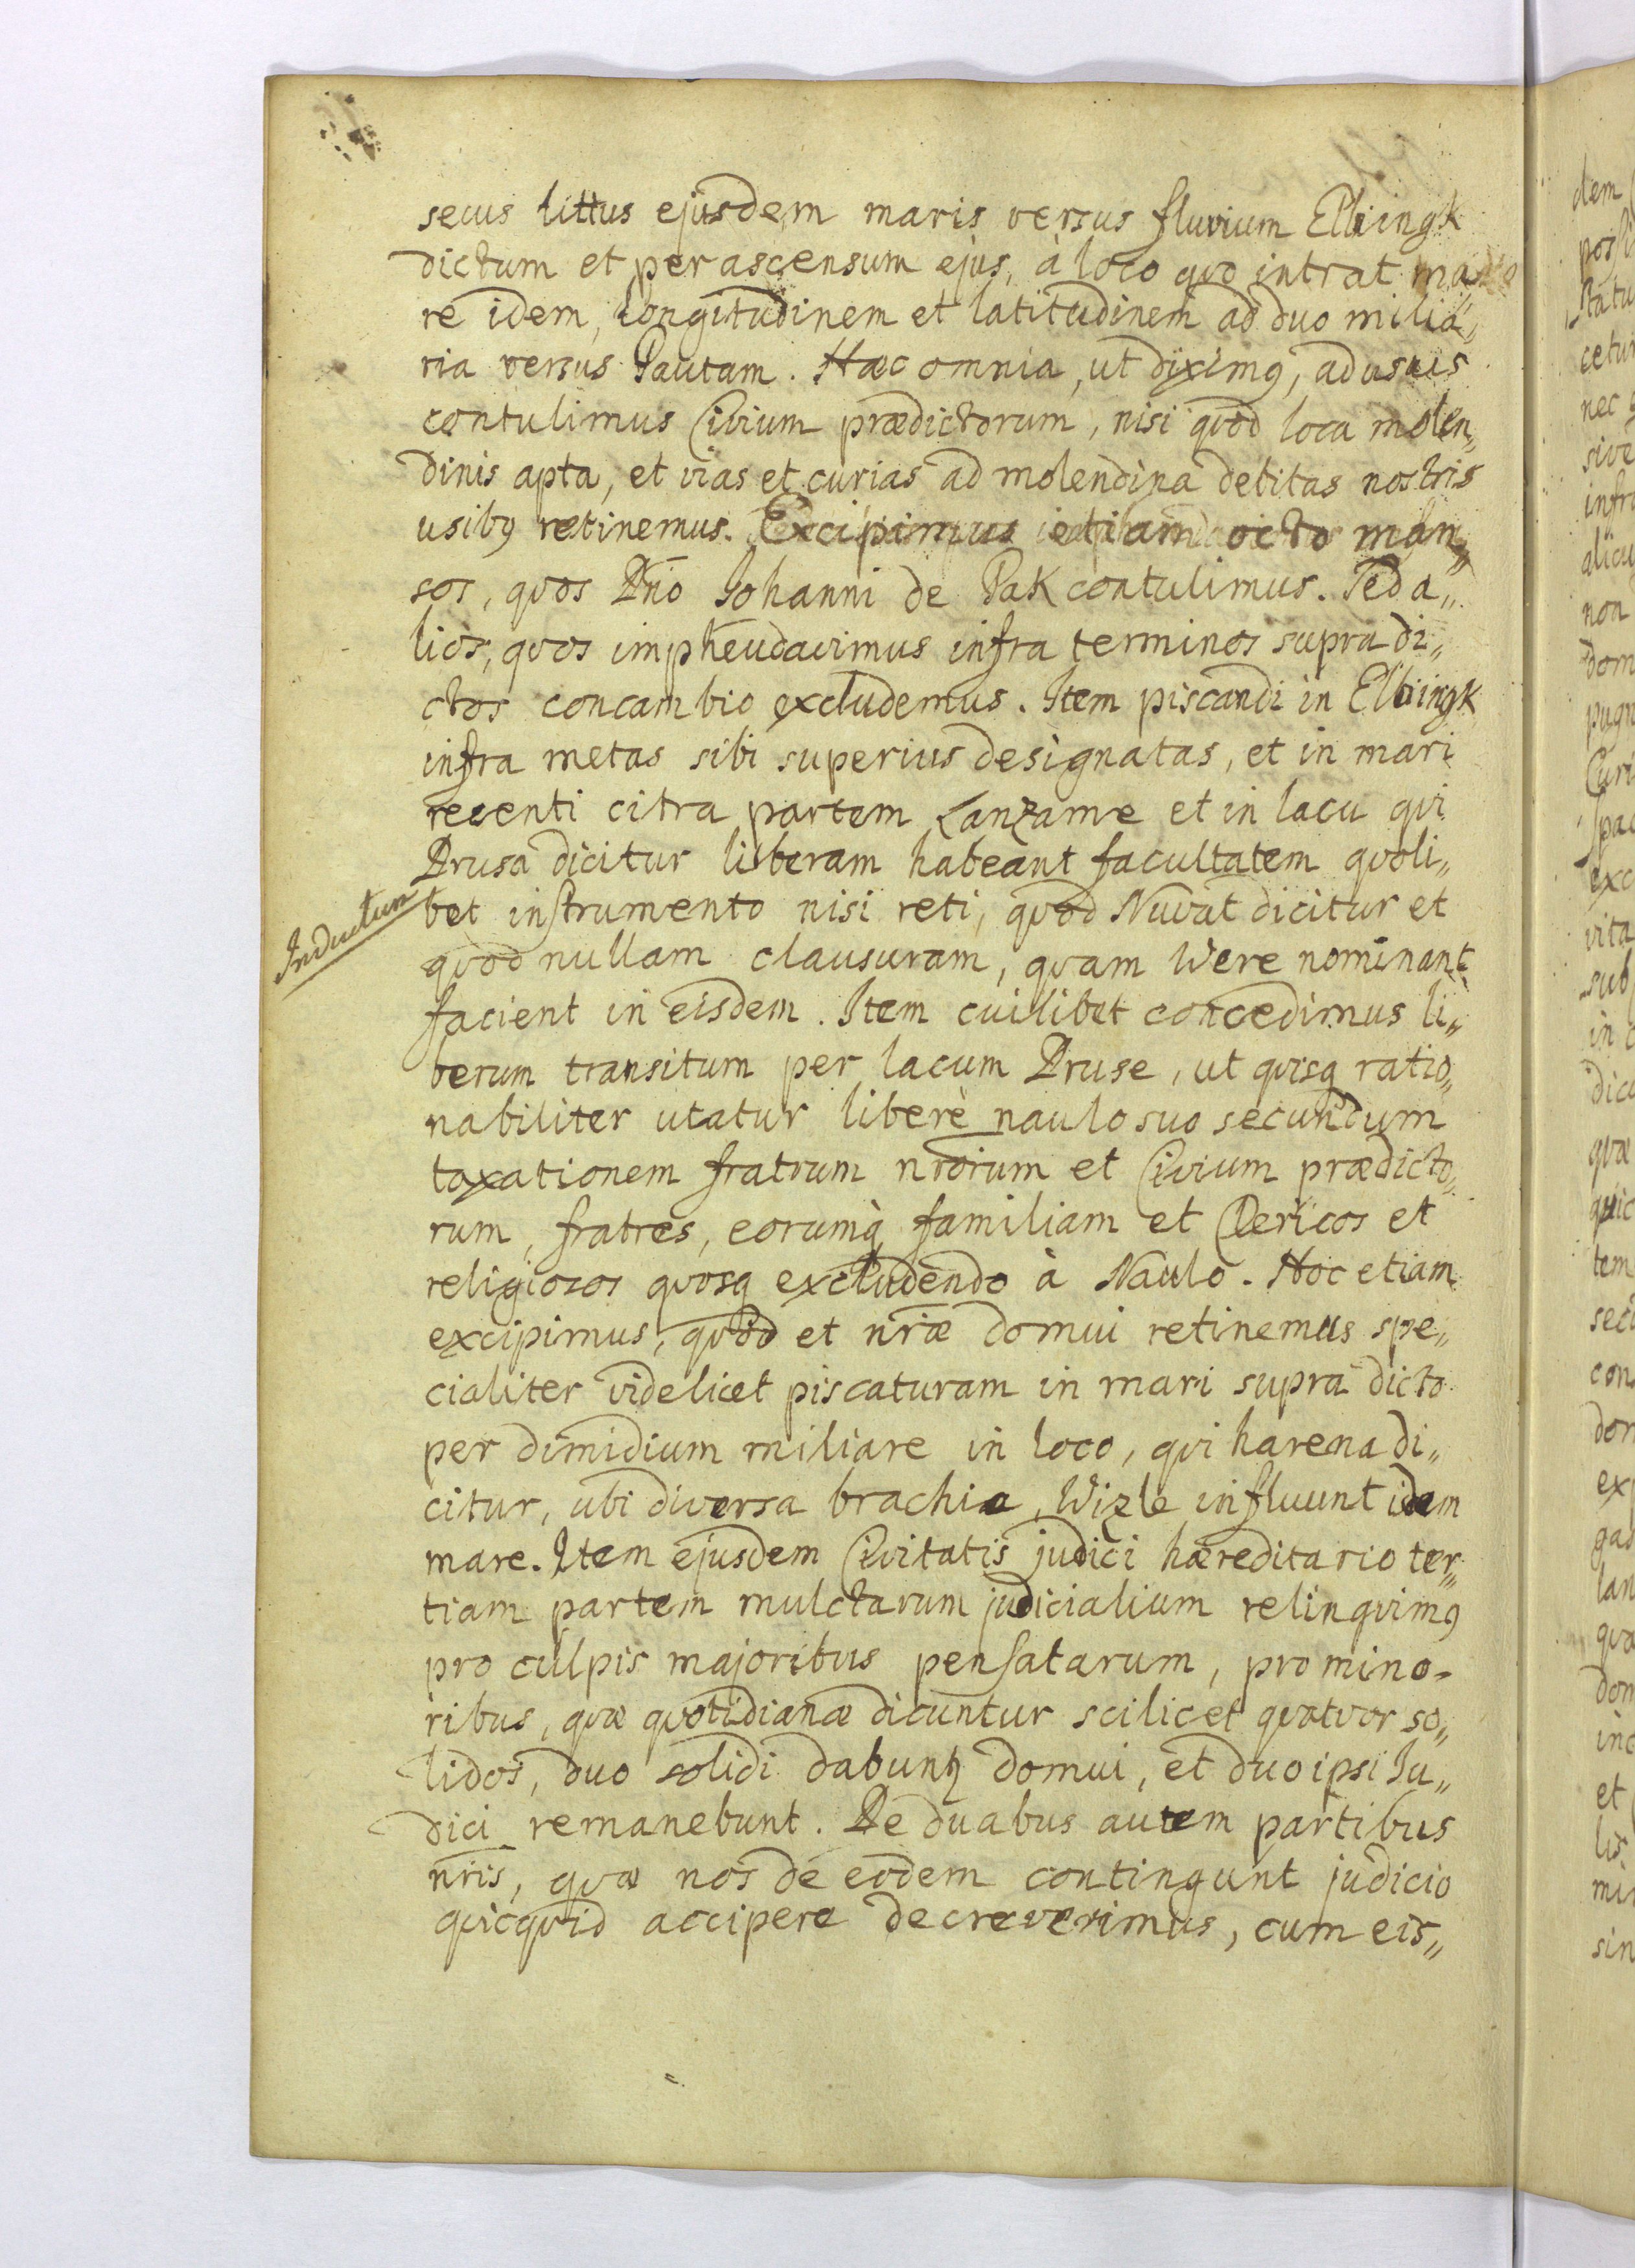 secus littus ejusdem maris versus fluvium Elbingk
dictum et per ascensum ejus, à loco quo intrat ma„
re idem, longitudinem et latitudinem ad duo milia„
ria versus Pautam. Hæc omnia, ut diximꝰ, ad usus
contulimus Civium prædictorum, nisi quod loca molen„
dinis apta, et vias et curias ad molendina debitas nostris
usibꝰ retinemus. Excipimus etiam octo man„
sos, quos Dn̄o Johanni de Pak contulimus. Feda„
lios, quos impheudavimus infra terminos supra di„
ctos concambio excludemus. Item piscandi in Elbingk
infra metas sibi superius designatas, et in mari
recenti citra partem Lanzame et in lacu qui
Drusa dicitur liberam habeant facultatem quoli„
Inductum
bet instrumento nisi reti, quod Nuvat dicitur et
quod nullam clausuram, quam Were nominant
facient in eisdem. Item cuilibet concedimus li„
berum transitum per lacum Druse, ut quisq ratio„
nabiliter utatur liberè naulo suo secundum
taxationem fratrum nr̄orum et Civium prædicto„
rum, fratres, eorumq̀ familiam et Clericos et
religiosos quosq excludendo à Naulo. Hoc etiam
excipimus, quod et nr̄æ domui retinemus spe„
cialiter videlicet piscaturam in mari supra dicto
per dimidium miliare in loco, qui harena di„
citur, ubi diversa brachia, Wizle influunt idem
mare. Item ejusdem Civitatis judici hæreditario ter„
tiam partem mulctarum judicialium relinquimꝰ
pro culpis majoribus pensatarum, pro mino-
ribus, quæ quotidianæ dicuntur scilicet quatuor so„
lidos, duo solidi dabunꝭ domui, et duo ipsi Ju„
dici remanebunt. De duabus autem partibus
nr̄is, quæ nos de eodem contingunt judicio
quicquid accipere decreverimus, cum eis„